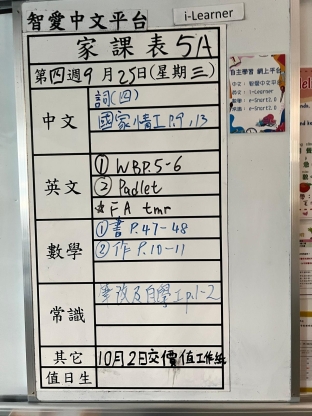 智愛中文平台
i-Learner
家課表 5A
第四週9月25日(星期三)
中文
詞(四)
國家情工P.9,13
英文
① WB P.5-6
② Padlet
☆ FA tmr
數學
① 書 P.47-48
② 作 P.10-11
常識
及自學工p.1-2
其它
10月2日交價值工作紙
值日生
自主學習 網上平台
中文：智愛中文平台
英文：i-Learner
數學：e-Smart2.0
常識：e-Smart2.0